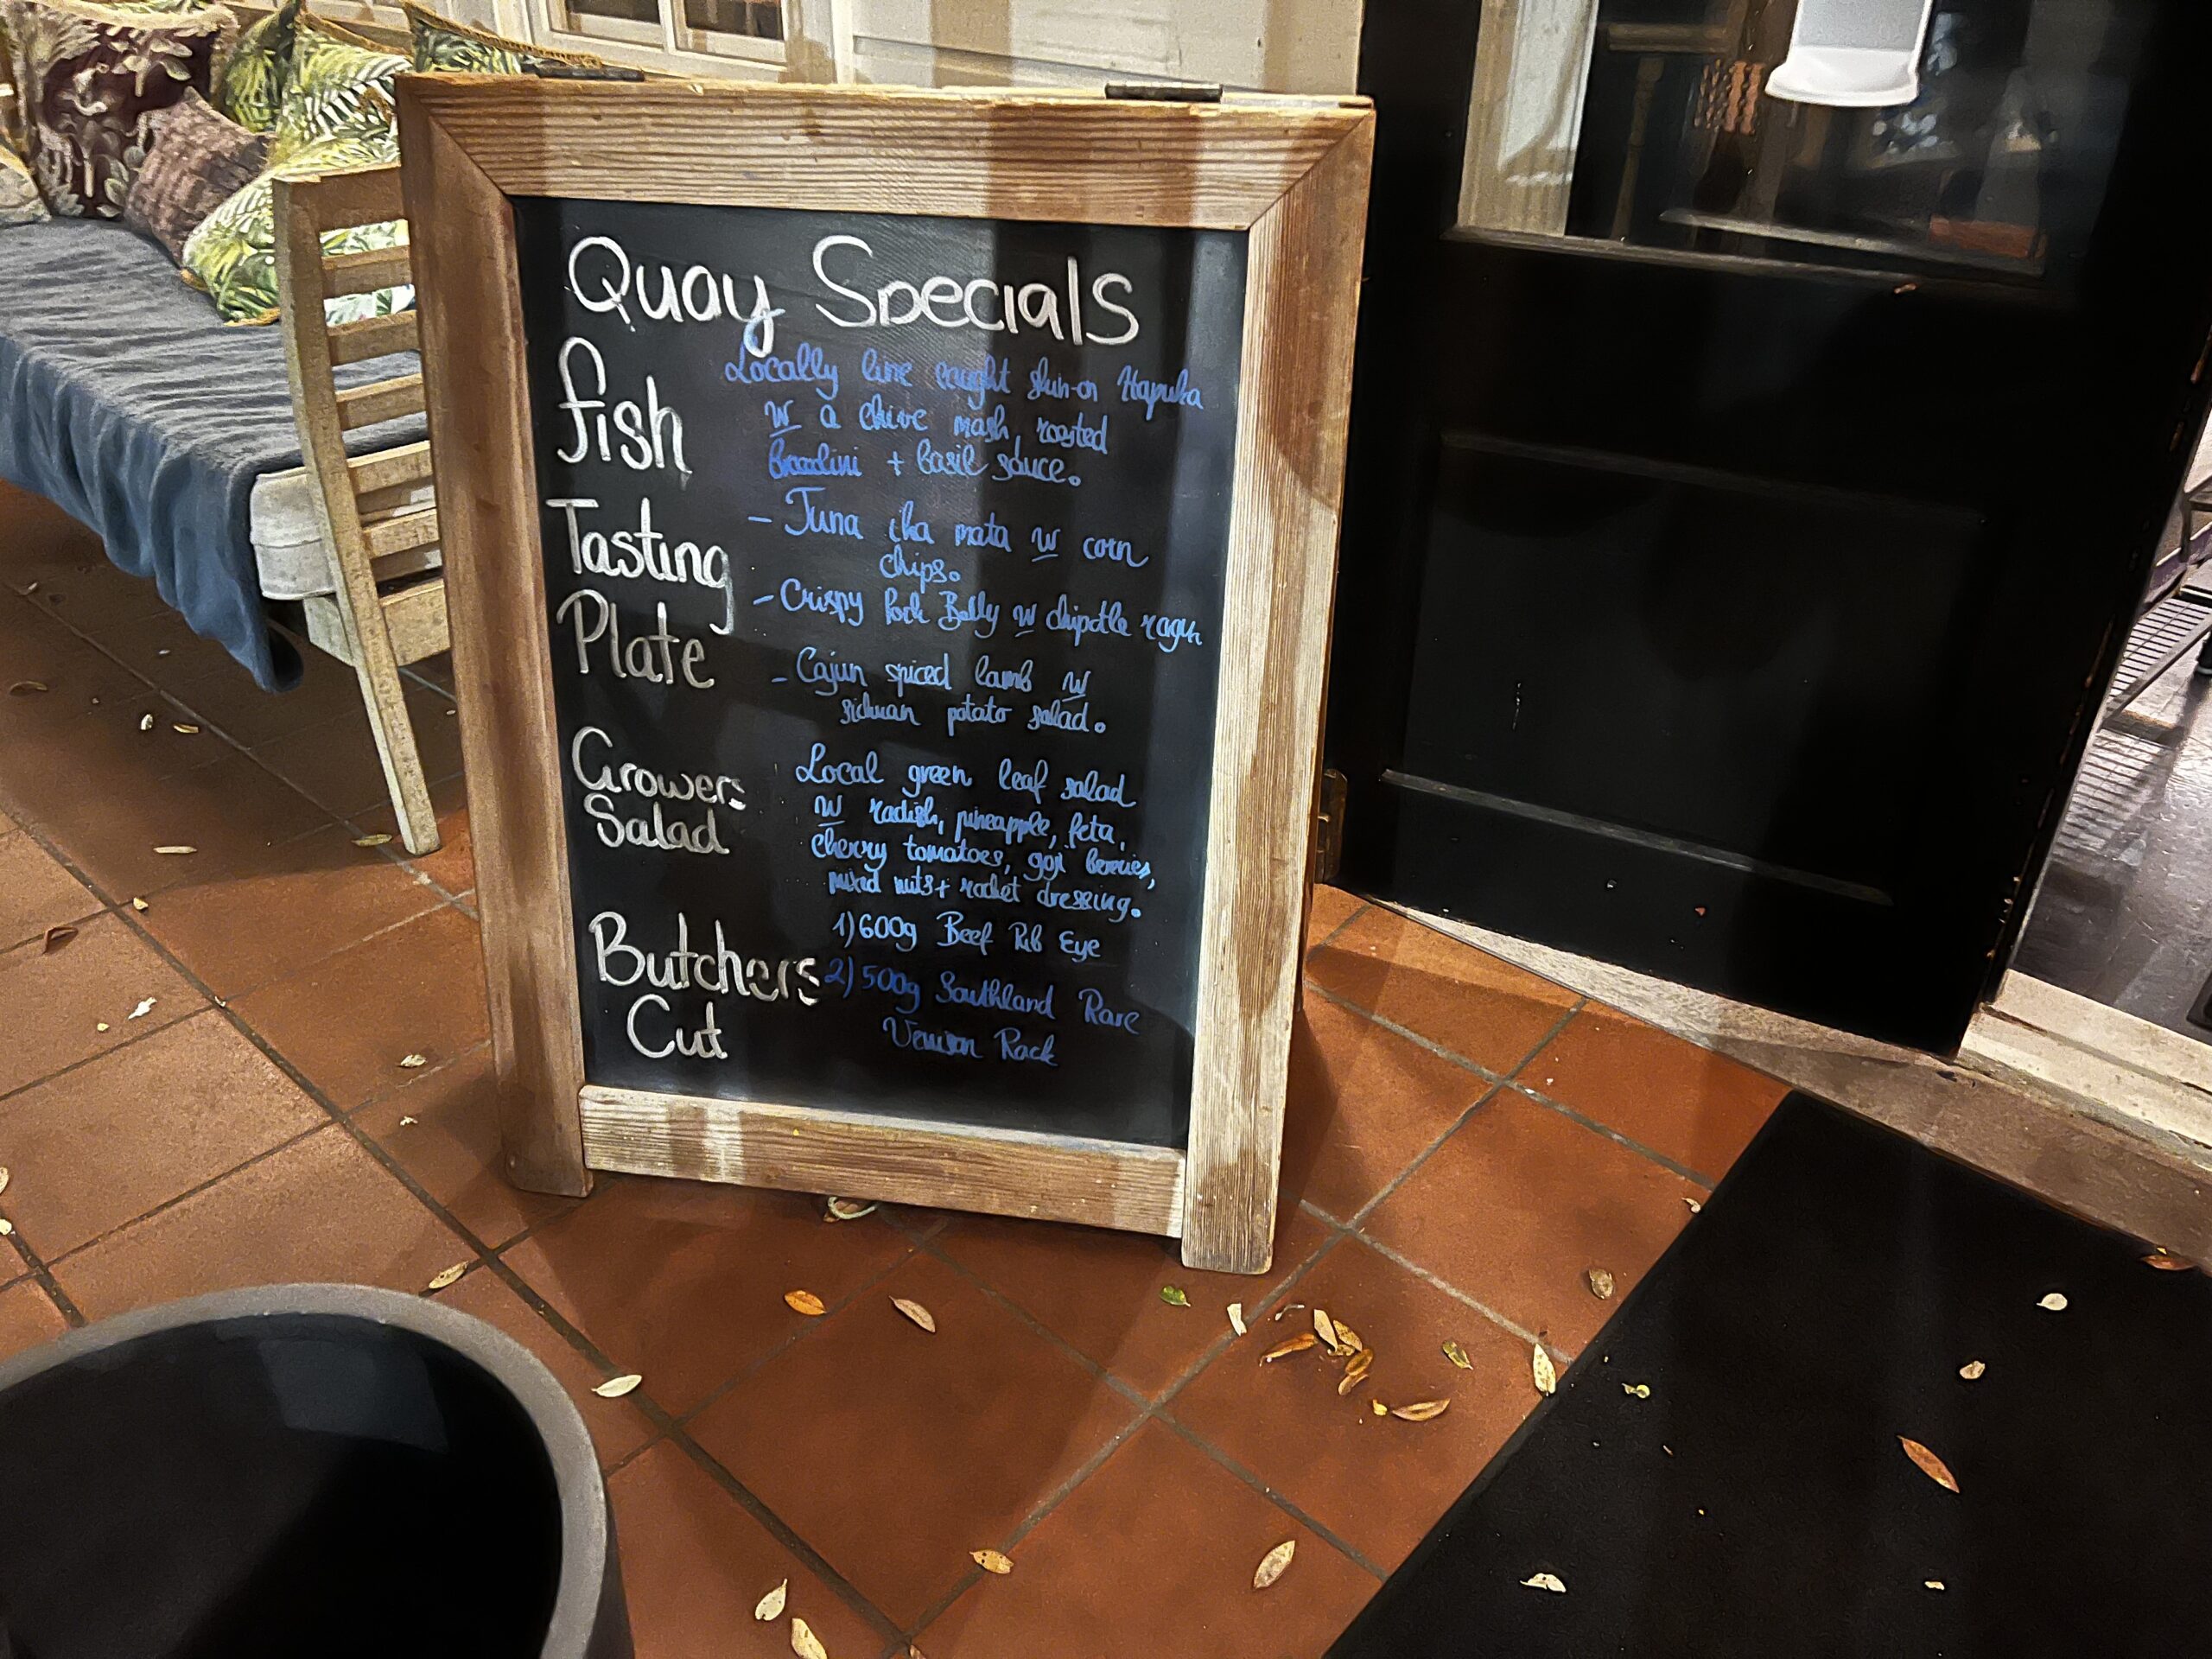 Quay Specials
fish
Locally line caught skin-on Hapuka
w a chive mash, roasted
+ basil sauce.
Tasting
Plate
- Tuna ika mata w corn
chips.
- Crispy Pork Belly w chipotle ragu
- Cajun spiced lamb w
potato salad.
Growers
Salad
Local green leaf salad
w radish, pineapple, feta,
cherry tomatoes, goji berries,
mixed nuts + rocket dressing.
Butchers
Cut
1) 600g Beef Rib Eye
2) 500g Southland Rare
Venison Rack